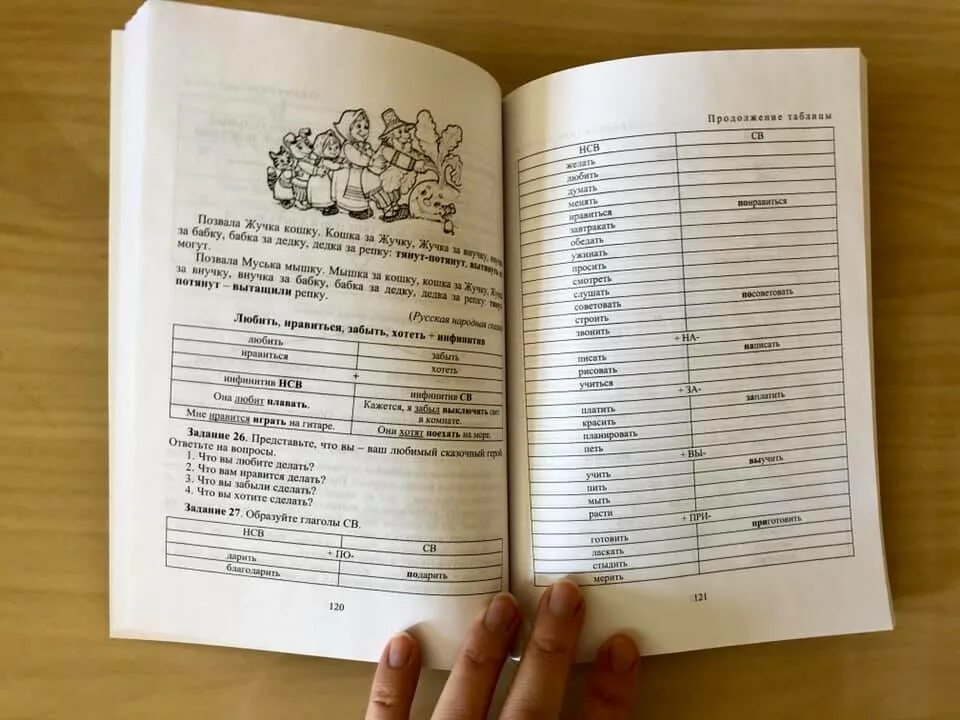 Позвала Жучка кошку. Кошка за Жучку, Жучка за внучку,
за бабку, бабка за дедку, дедка за репку: тянут-потянут, вытянуть не
могут.
Позвала Муська мышку. Мышка за кошку, кошка за Жучку,
за внучку, внучка за бабку, бабка за дедку, дедка за репку:
потянут – вытащили репку.
(Русская народная
Любить, нравиться, забыть, хотеть + инфинитив
любить забыть
нравиться хотеть
+
инфинитив НСВ инфинитив СВ
Она любит плавать. Кажется, я забыл выключить свет
в комнате.
Мне нравится играть на гитаре. Они хотят поехать на море.
Задание 26. Представьте, что вы – ваш любимый сказочный
Ответьте на вопросы.
1. Что вы любите делать?
2. Что вам нравится делать?
3. Что вы забыли сделать?
4. Что вы хотите сделать?
Задание 27. Образуйте глаголы СВ.
НСВ СВ
+ ПО-
дарить подарить
благодарить
120
Продолжение таблицы
НСВ СВ
желать
любить
думать
менять
нравиться понравиться
завтракать
обедать
ужинать
просить
смотреть
слушать
советовать посоветовать
строить
звонить
+ НА-
писать написать
рисовать
учиться
+ ЗА-
платить заплатить
красить
планировать
петь
+ ВЫ-
учить выучить
пить
мыть
расти
+ ПРИ-
готовить приготовить
ласкать
стыдить
мерить
121